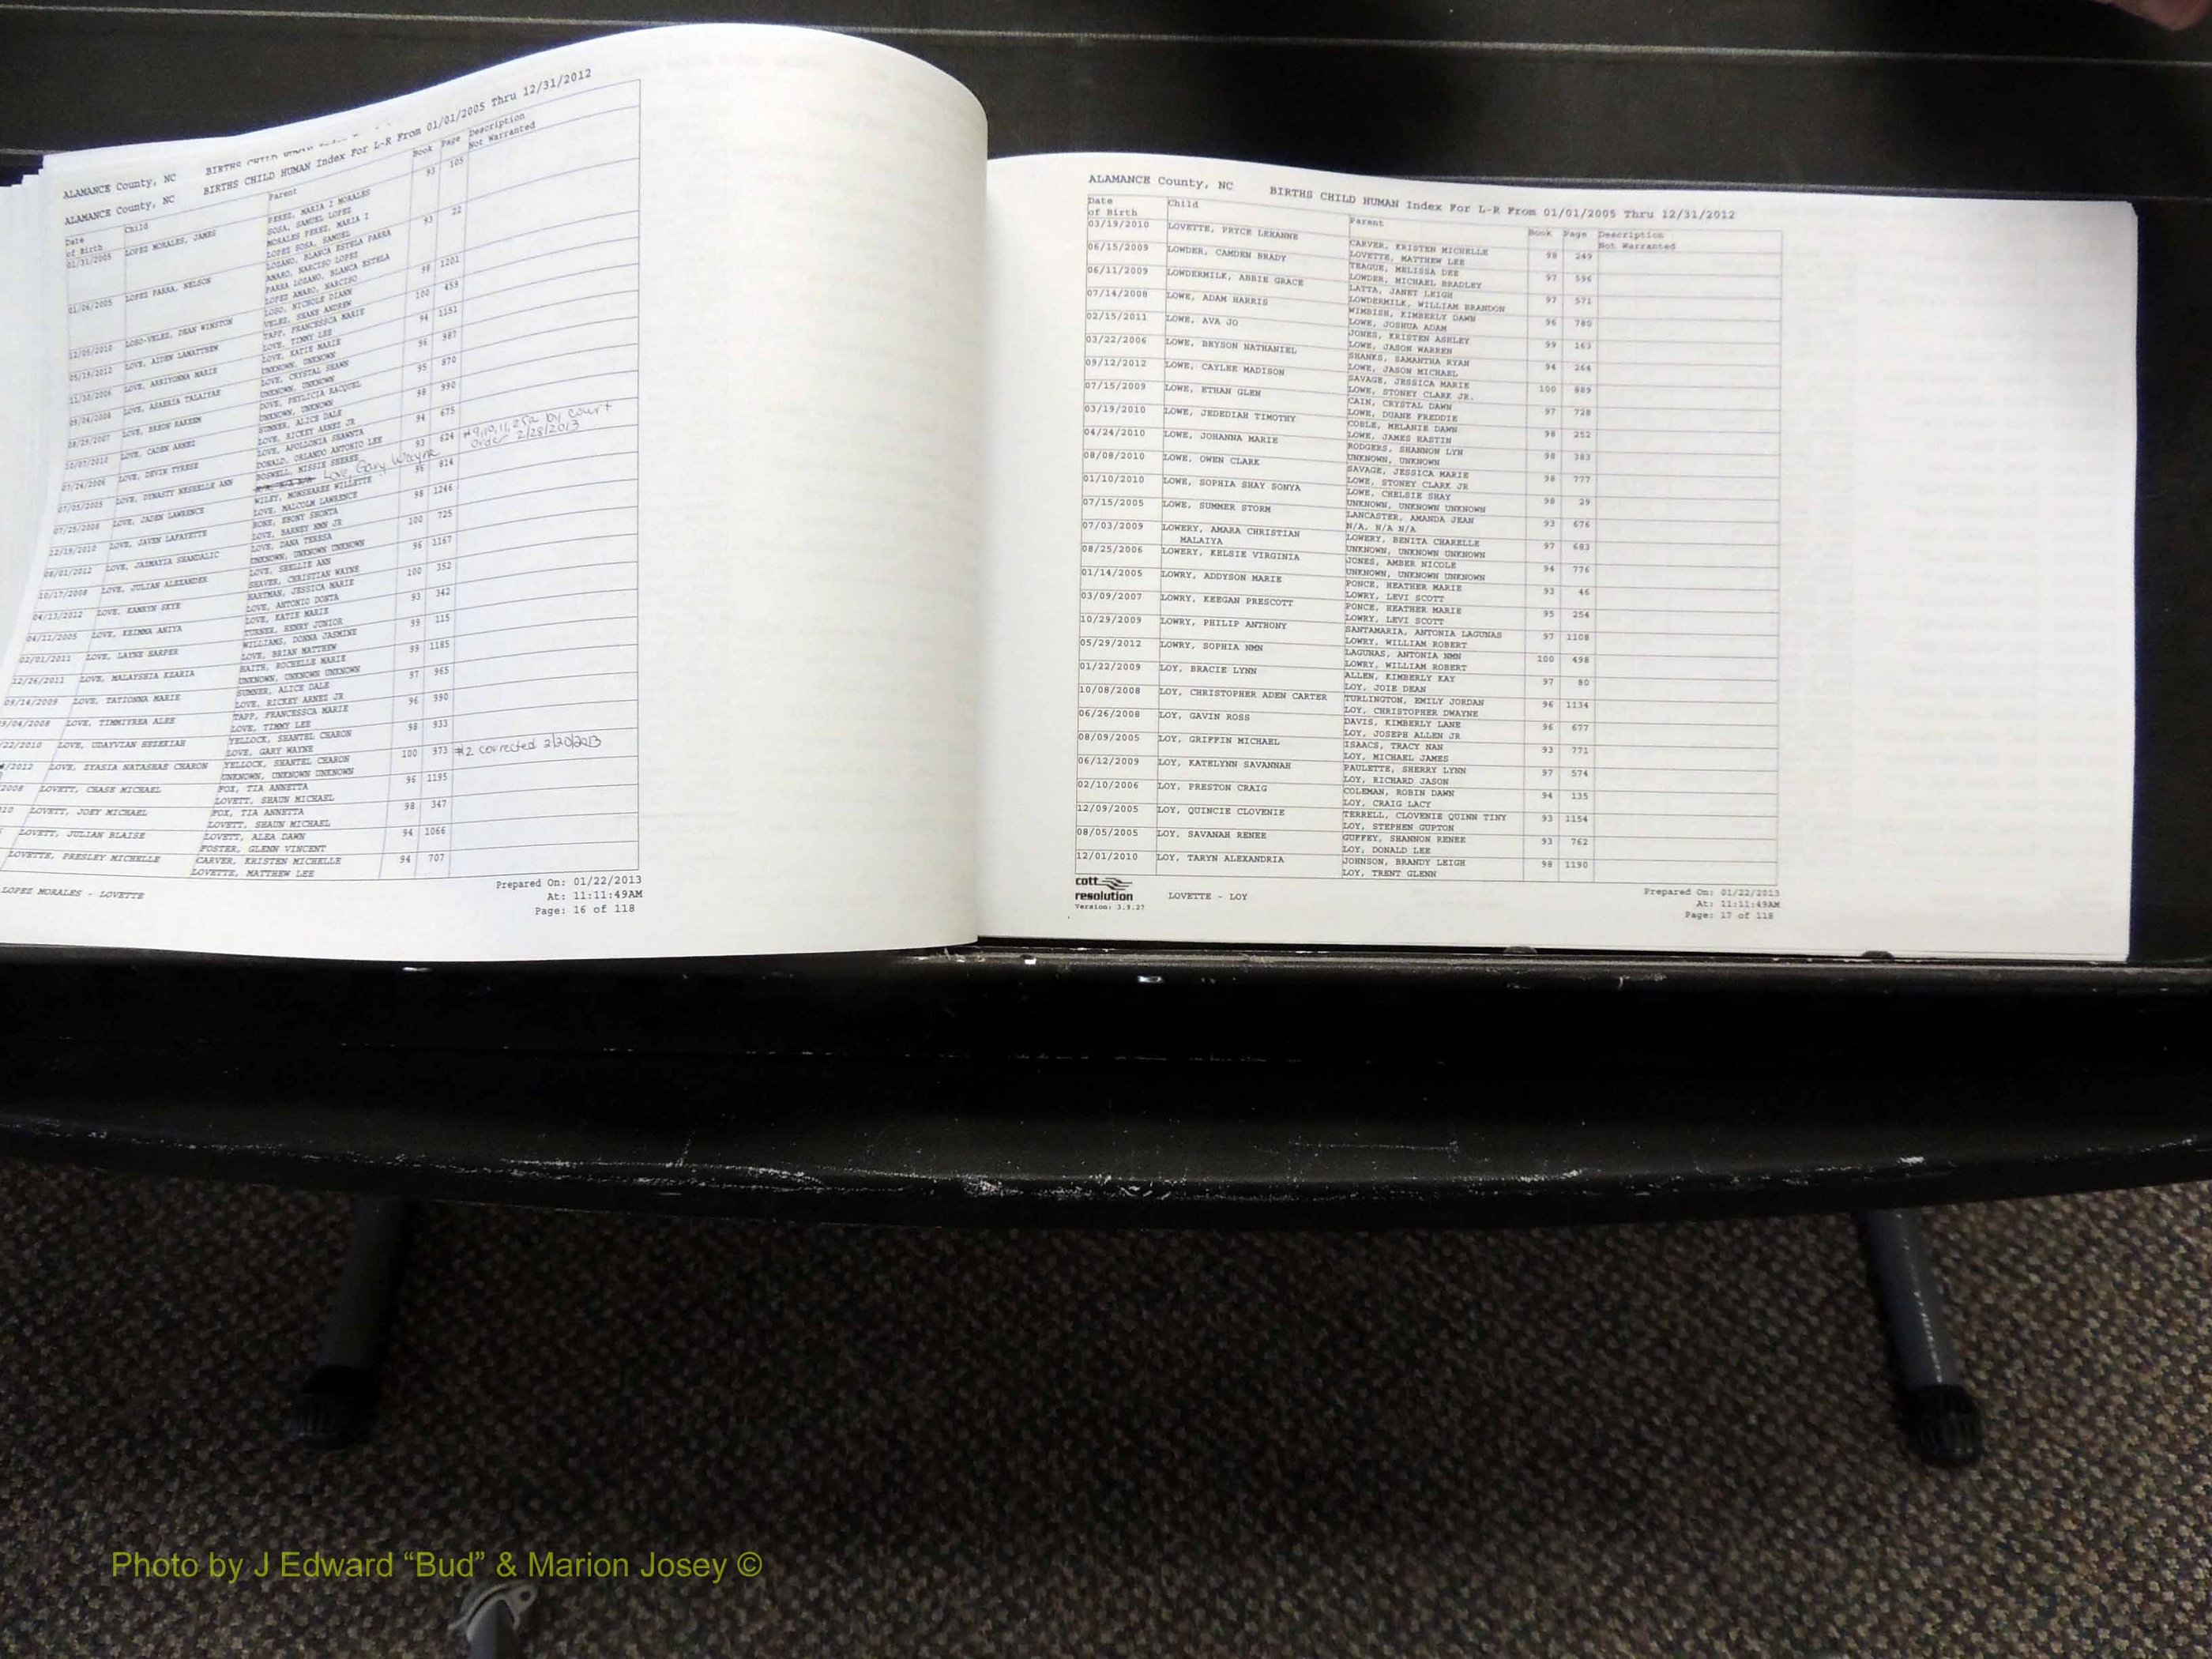 ALAMANCE County, NC BIRTHS CHILD HUMAN
ALAMANCE County, NC BIRTHS CHILD HUMAN Index For L-R From 01/01/2005 Thru 12/31/2012
Date of Birth Child Parent Book Page Description Not Warranted
01/31/2005 LOPEZ MORALES, JAMES PEREZ, MARIA I MORALES 93 105
SOSA, SAMUEL LOPEZ
MORALES PEREZ, MARIA I
LOPEZ SOSA, SAMUEL
01/06/2005 LOPEZ PARRA, NELSON LOZANO, BLANCA ESTELA PARRA 93 22
AMARO, NARCISO LOPEZ
PARRA LOZANO, BLANCA ESTELA
LOPEZ AMARO, NARCISO
12/05/2010 LOSO-VELEZ, DEAN WINSTON LOSO, NICHOLE DIANN 98 1201
VELEZ, SHANE ANDREW
05/19/2012 LOVE, AIDEN LAMATTHEW TAPP, FRANCESSCA MARIE 100 459
LOVE, TIMMY LEE
11/30/2006 LOVE, ARRIYONNA MARIE LOVE, KATIE MARIE 94 1151
UNKNOWN, UNKNOWN
09/04/2008 LOVE, ASAERIA TALAIYAE LOVE, CRYSTAL SHAWN 96 987
UNKNOWN, UNKNOWN
08/29/2007 LOVE, BREON RAKEEM DOVE, PHYLICIA RACQUEL 95 870
UNKNOWN, UNKNOWN
10/07/2010 LOVE, CADEN ARNEZ SUMNER, ALICE DALE 98 990
LOVE, RICKEY ARNEZ JR
07/24/2006 LOVE, DEVIN TYRESE LOVE, APOLLONIA SHAWNTA 94 675
DONALD, ORLANDO ANTONIO LEE
07/05/2005 LOVE, DYNASTY NESHELLE ANN BOSWELL, MISSIE SHEREE 93 624 #9,10,11,25a by court
N/A, N/A N/A Love, Gary Wayne order 2/28/2013
07/25/2008 LOVE, JADEN LAWRENCE WILEY, MONSHAREE WILLETTE 96 814
LOVE, MALCOLM LAWRENCE
12/19/2010 LOVE, JAVEN LAFAYETTE RONE, EBONY SHONTA 98 1246
LOVE, BARNEY NMN JR
08/01/2012 LOVE, JAZMAYIA SHANDALIC LOVE, DANA TERESA 100 725
UNKNOWN, UNKNOWN UNKNOWN
10/17/2008 LOVE, JULIAN ALEXANDER LOVE, SHELLIE ANN 96 1167
SHAVER, CHRISTIAN WAYNE
04/13/2012 LOVE, KAMRYN SKYE HARTMAN, JESSICA MARIE 100 352
LOVE, ANTONIO DONTA
04/11/2005 LOVE, KRIMMA ANIYA LOVE, KATIE MARIE 93 342
TURNER, HENRY JUNIOR
02/01/2011 LOVE, LAYNE HARPER WILLIAMS, DONNA JASMINE 99 115
LOVE, BRIAN MATTHEW
12/26/2011 LOVE, MALAYSHIA KZARIA HAITH, ROCHELLE MARIE 99 1185
UNKNOWN, UNKNOWN UNKNOWN
09/14/2009 LOVE, TATIONNA MARIE SUMNER, ALICE DALE 97 965
LOVE, RICKEY ARNEZ JR
9/04/2008 LOVE, TIMMIYREA ALEE TAPP, FRANCESSCA MARIE 96 990
LOVE, TIMMY LEE
/22/2010 LOVE, UDAYVIAN HEZEKIAH YELLOCK, SHANTEL CHARON 98 933
LOVE, GARY WAYNE
/2012 LOVE, ZYASIA NATASHAE CHARON YELLOCK, SHANTEL CHARON 100 973 #2 corrected 2/20/2013
UNKNOWN, UNKNOWN UNKNOWN
2008 LOVETT, CHASE MICHAEL FOX, TIA ANNETTA 96 1195
LOVETT, SHAUN MICHAEL
10 LOVETT, JOEY MICHAEL FOX, TIA ANNETTA 98 347
LOVETT, SHAUN MICHAEL
LOVETT, JULIAN BLAISE LOVETT, ALEA DAWN 94 1066
FOSTER, GLENN VINCENT
LOVETTE, PRESLEY MICHELLE CARVER, KRISTEN MICHELLE 94 707
LOVETTE, MATTHEW LEE
LOPEZ MORALES - LOVETTE
Prepared On: 01/22/2013
At: 11:11:49AM
Page: 16 of 118
ALAMANCE County, NC BIRTHS CHILD HUMAN Index For L-R From 01/01/2005 Thru 12/31/2012
Date of Birth Child Parent Book Page Description Not Warranted
03/19/2010 LOVETTE, PRYCE LEEANNE CARVER, KRISTEN MICHELLE 98 249
LOVETTE, MATTHEW LEE
06/15/2009 LOWDER, CAMDEN BRADY TEAGUE, MELISSA DEE 97 596
LOWDER, MICHAEL BRADLEY
06/11/2009 LOWDERMILK, ABBIE GRACE LATTA, JANET LEIGH 97 571
LOWDERMILK, WILLIAM BRANDON
07/14/2008 LOWE, ADAM HARRIS WIMBISH, KIMBERLY DAWN 96 780
LOWE, JOSHUA ADAM
02/15/2011 LOWE, AVA JO JONES, KRISTEN ASHLEY 99 163
LOWE, JASON WARREN
03/22/2006 LOWE, BRYSON NATHANIEL SHANKS, SAMANTHA RYAN 94 264
LOWE, JASON MICHAEL
09/12/2012 LOWE, CAYLEE MADISON SAVAGE, JESSICA MARIE 100 889
LOWE, STONEY CLARK JR.
07/15/2009 LOWE, ETHAN GLEN CAIN, CRYSTAL DAWN 97 728
LOWE, DUANE FREDDIE
03/19/2010 LOWE, JEDEDIAH TIMOTHY COBLE, MELANIE DAWN 98 252
LOWE, JAMES HASTIN
04/24/2010 LOWE, JOHANNA MARIE RODGERS, SHANNON LYN 98 383
UNKNOWN, UNKNOWN
08/08/2010 LOWE, OWEN CLARK SAVAGE, JESSICA MARIE 98 777
LOWE, STONEY CLARK JR
01/10/2010 LOWE, SOPHIA SHAY SONYA LOWE, CHELSIE SHAY 98 29
UNKNOWN, UNKNOWN UNKNOWN
07/15/2005 LOWE, SUMMER STORM LANCASTER, AMANDA JEAN 93 676
N/A, N/A N/A
07/03/2009 LOWERY, AMARA CHRISTIAN LOWERY, BENITA CHARELLE 97 683
MALAIYA UNKNOWN, UNKNOWN UNKNOWN
08/25/2006 LOWERY, KELSIE VIRGINIA JONES, AMBER NICOLE 94 776
UNKNOWN, UNKNOWN UNKNOWN
01/14/2005 LOWRY, ADDYSON MARIE PONCE, HEATHER MARIE 93 46
LOWRY, LEVI SCOTT
03/09/2007 LOWRY, KEEGAN PRESCOTT PONCE, HEATHER MARIE 95 254
LOWRY, LEVI SCOTT
10/29/2009 LOWRY, PHILIP ANTHONY SANTAMARIA, ANTONIA LAGUNAS 97 1108
LOWRY, WILLIAM ROBERT
05/29/2012 LOWRY, SOPHIA NMN LAGUNAS, ANTONIA NMN 100 498
LOWRY, WILLIAM ROBERT
01/22/2009 LOY, BRACIE LYNN ALLEN, KIMBERLY KAY 97 80
LOY, JOIE DEAN
10/08/2008 LOY, CHRISTOPHER ADEN CARTER TURLINGTON, EMILY JORDAN 96 1134
LOY, CHRISTOPHER DWAYNE
06/26/2008 LOY, GAVIN ROSS DAVIS, KIMBERLY LANE 96 677
LOY, JOSEPH ALLEN JR
08/09/2005 LOY, GRIFFIN MICHAEL ISAACS, TRACY NAN 93 771
LOY, MICHAEL JAMES
06/12/2009 LOY, KATELYNN SAVANNAH PAULETTE, SHERRY LYNN 97 574
LOY, RICHARD JASON
02/10/2006 LOY, PRESTON CRAIG COLEMAN, ROBIN DAWN 94 135
LOY, CRAIG LACY
12/09/2005 LOY, QUINCIE CLOVENIE TERRELL, CLOVENIE QUINN TINY 93 1154
LOY, STEPHEN GUPTON
08/05/2005 LOY, SAVANAH RENEE GUFFEY, SHANNON RENEE 93 762
LOY, DONALD LEE
12/01/2010 LOY, TARYN ALEXANDRIA JOHNSON, BRANDY LEIGH 98 1190
LOY, TRENT GLENN
cott
resolution
Version: 3.9.27
LOVETTE - LOY
Prepared On: 01/22/2013
At: 11:11:49AM
Page: 17 of 118
Photo by J Edward “Bud” & Marion Josey ©